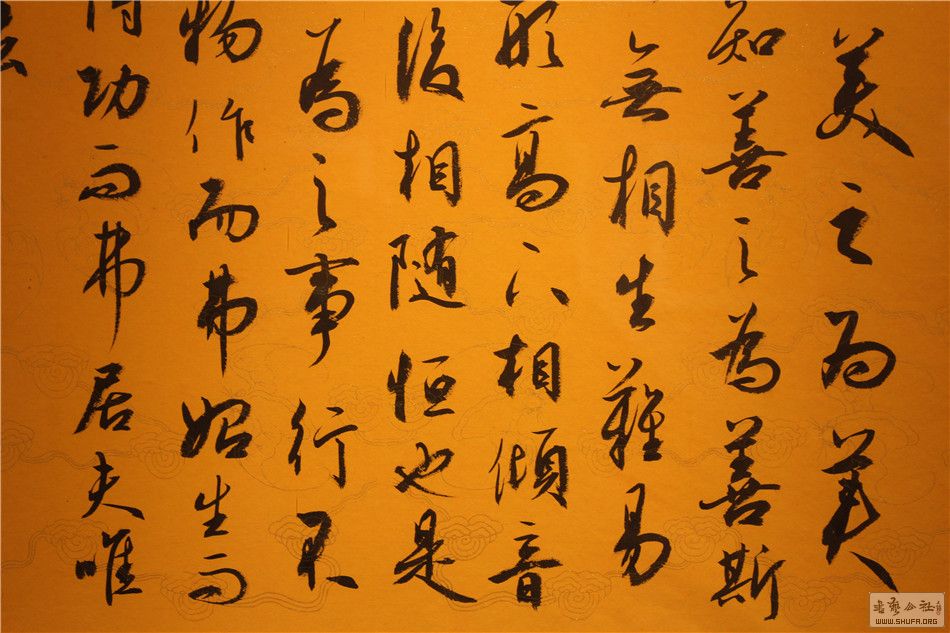 美之為美
知善之為善斯
無相生難易
形高下相傾音
後相随恒也是
為之事行不
物作而弗始生而
功而弗居夫唯
書藝公社
WWW.SHUFA.ORG